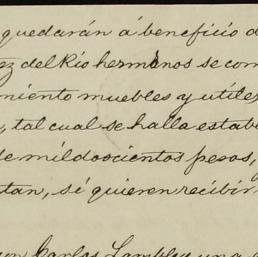 quedarán á beneficio d
ez del Río hermanos se com
miento muebles y utiles
, tal cual se halla estab
de mil doscientos pesos,
tan, sé quieren recibir
Carlos Lambley una